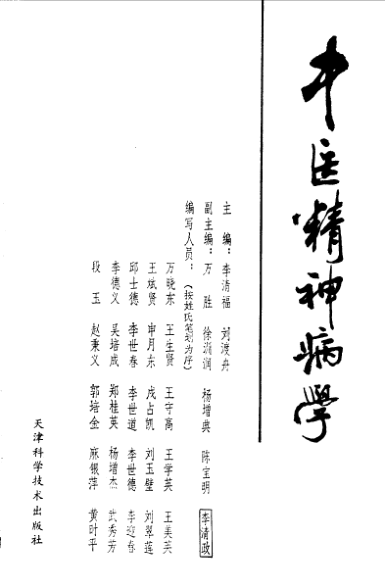 中医精神病学
主编：李清福 刘渡舟
副主编：万胜 徐润润 杨增典 陈宝明 李清政
编写人员：（按姓氏笔划为序）
万晓东 王生贤 王守高 王学英 王美芙
王斌贤 申月东 成占凯 刘玉璧 刘翠莲
邱士德 李世春 李世道 李世德 李迎春
李德义 吴培成 郑桂英 杨增杰 武秀芳
段玉 赵秉义 郭培金 麻银萍 黄时平
天津科学技术出版社